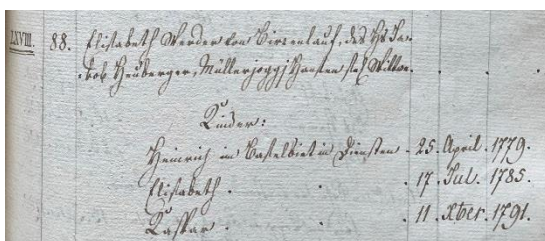 LXVIII. 88. Elisabeth Werder von Birrenlauf, des Hs Ja-
kob Heuberger, Müllerjoggj Hansen sel. Wittwe.
Kinder:
Heinrich im Baselbiet in Diensten . 25. April. 1779.
Elisabeth . . . 17. Jul. 1785.
Kaspar . . . 11. Xber. 1791.